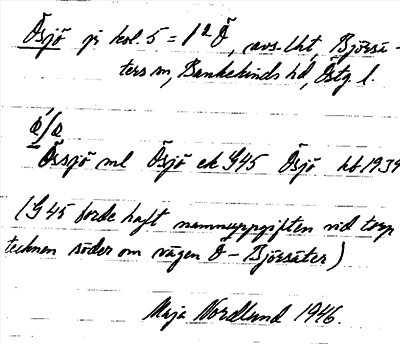 Ösjö gi kol. 5 = 1/2 Ö, avs. Lht, Björsä-
ters sn, Bankekinds hd, Östg l.
a/a
Össjö ml Ösjö ek G45 Ösjö hb 1939
(G 45 borde haft namnuppgiften vid torp
tecknen söder om vägen Ö - Björsäter)
Maja Nordlund 1946.